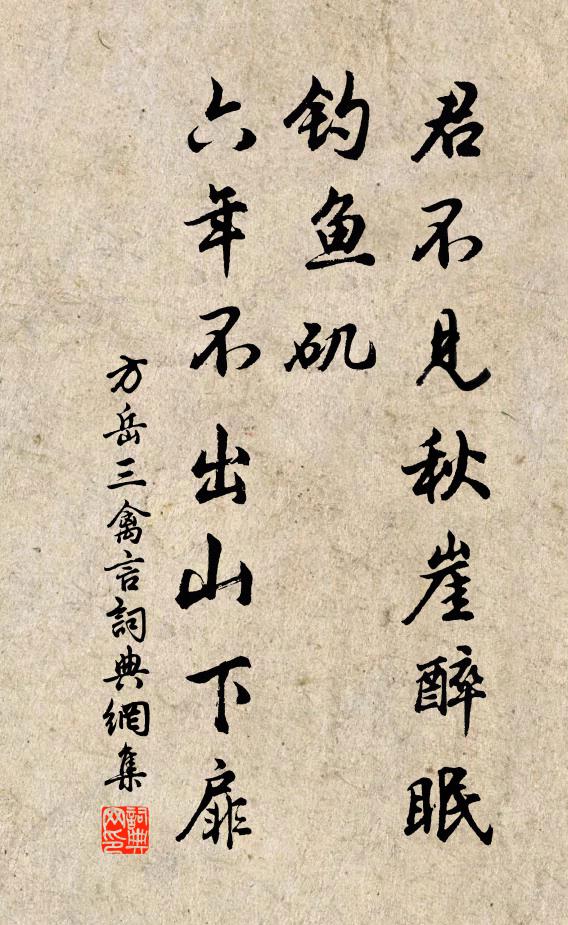 君不见秋崖醉眠
钓鱼矶
六年不出山下扉
方岳三禽言詞典網集
詞典
网印